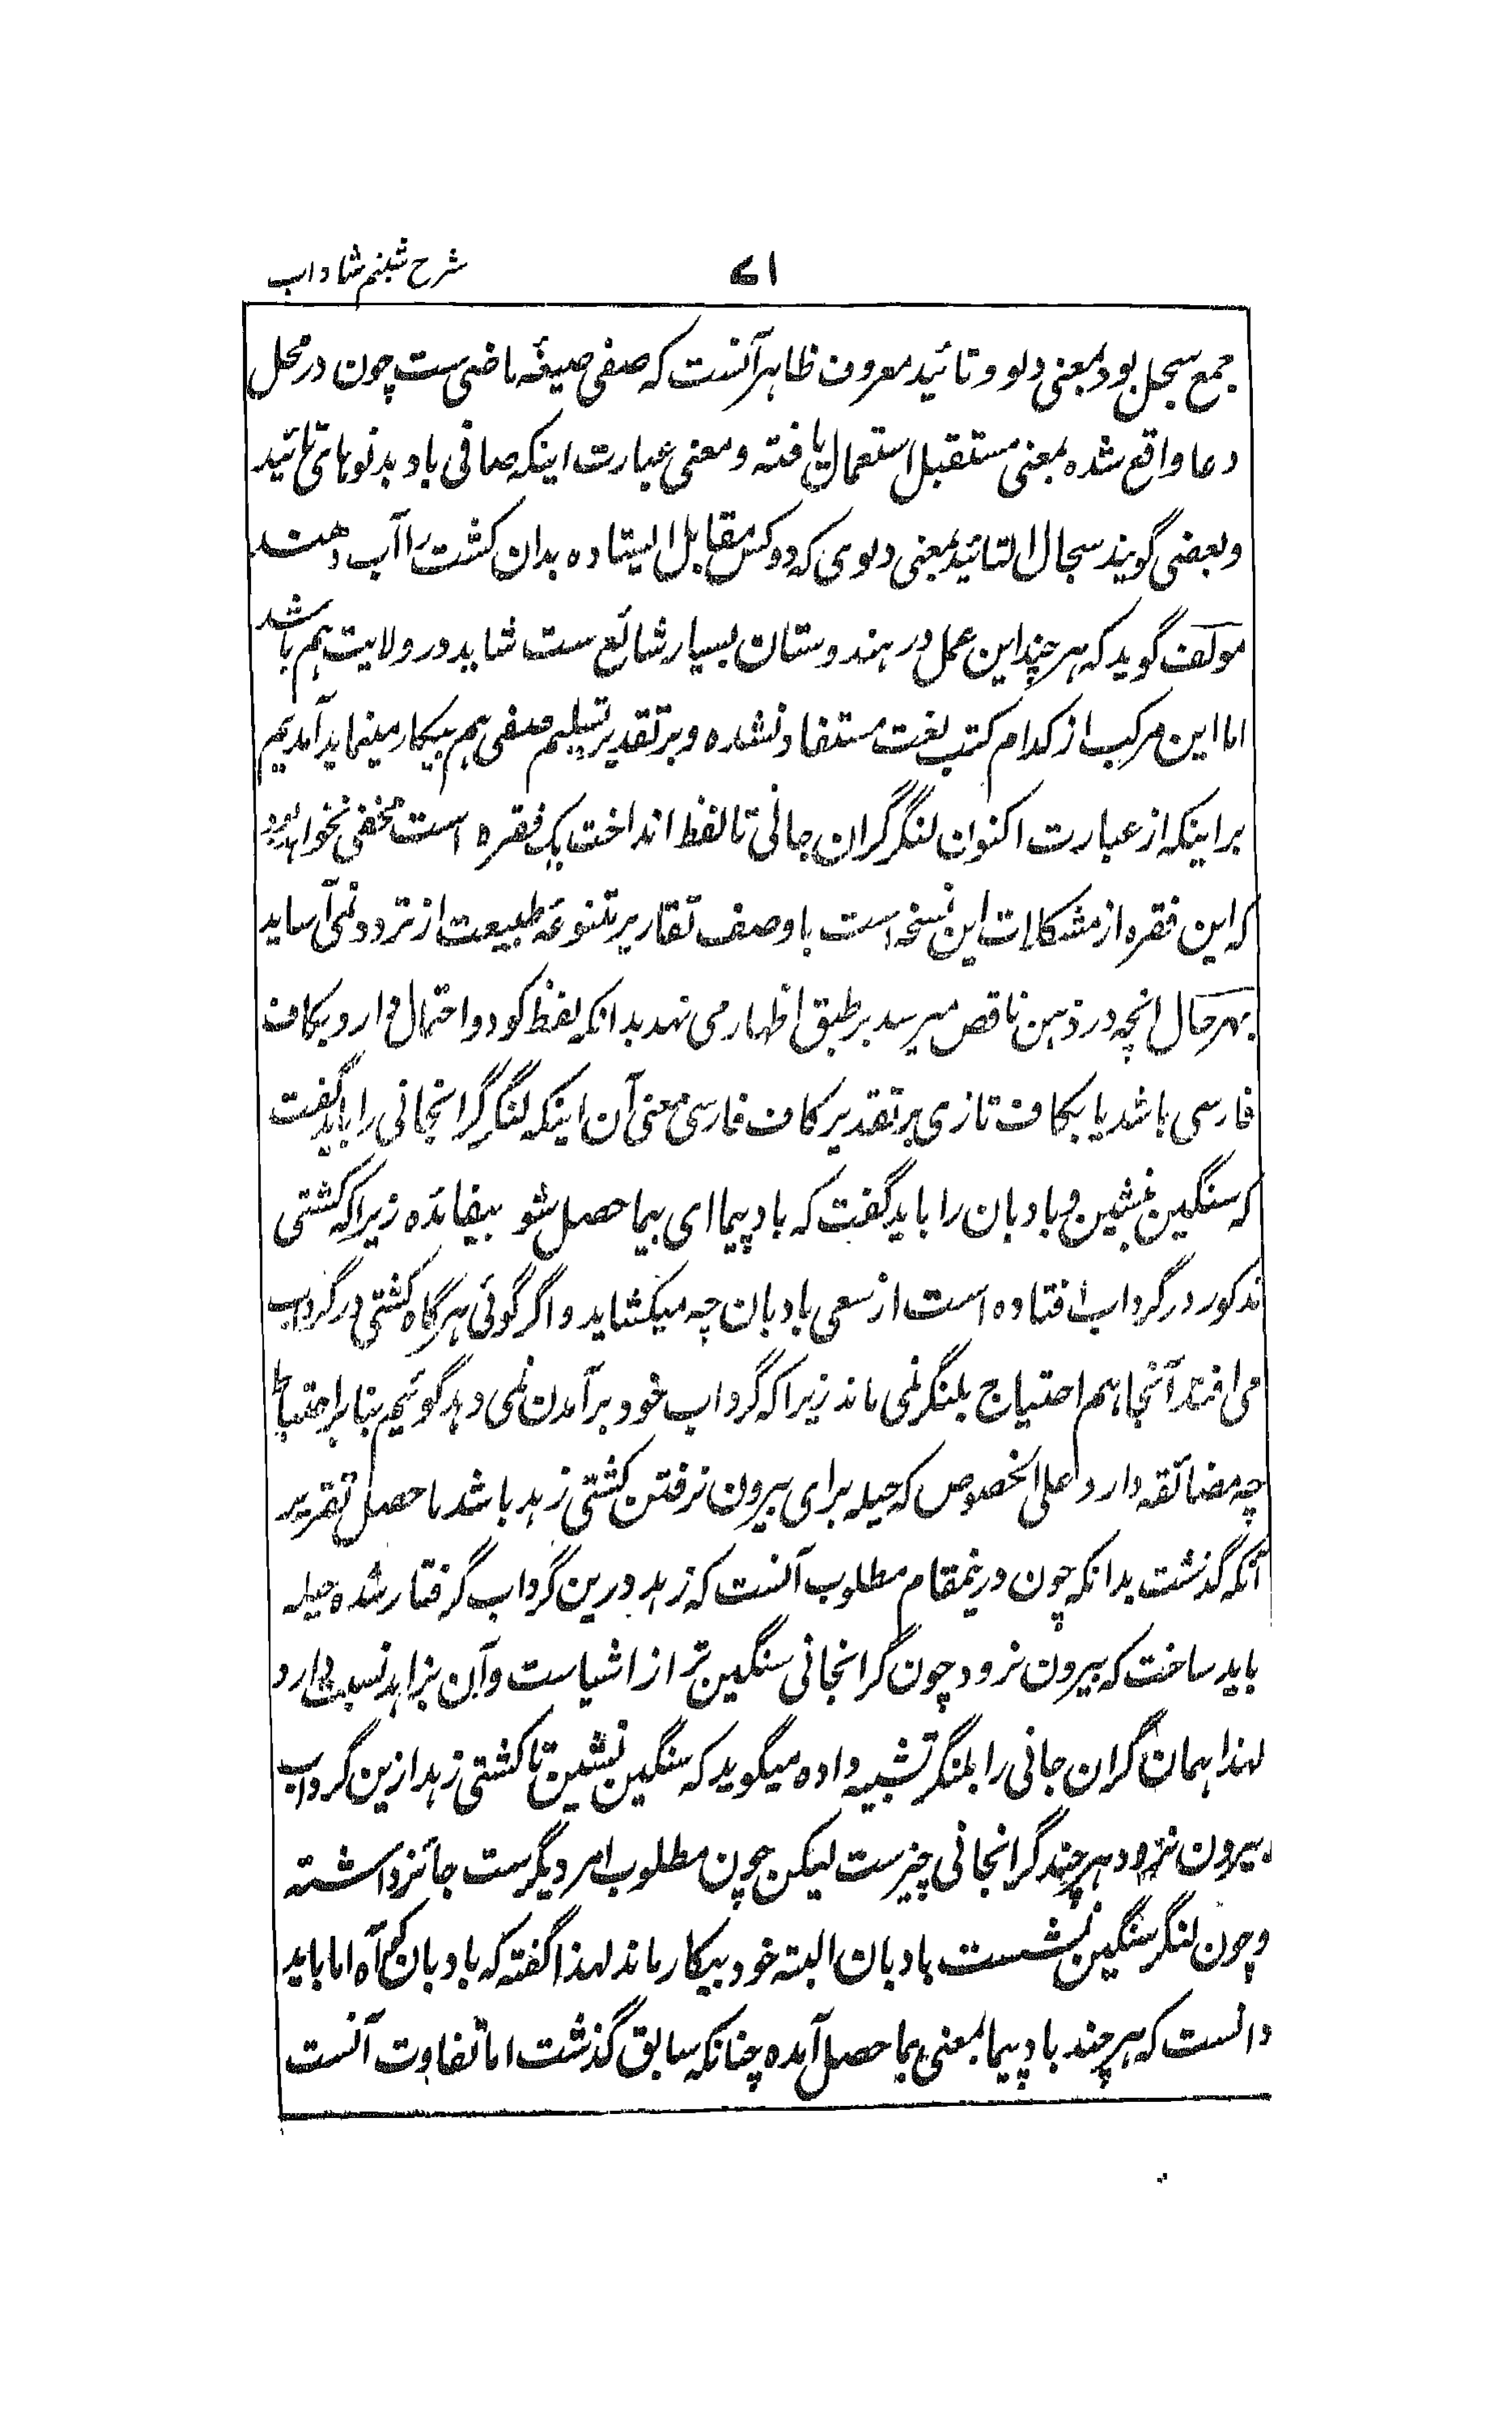 شرح شبنم شاداب
۷۱
جمع سجل بود بمعنی دلو و تائید معروف ظاہر آنست کہ صفی صیغۂ ماضی ست چون در محل
دعا واقع شدہ بمعنی مستقبل استعمال یافتہ و معنی عبارت اینکہ صافی باد بدلوہای تائید
و بعضی گویند سجال التائید بمعنی دلوی کہ دو کس مقابل ایستادہ بدان کشت را آب دہند
مولف گوید کہ ہر چند این عمل در ہندوستان بسیار شائع ست شاید در ولایت ہم باشد
اما این مرکب از کدام کتب لغت مستفاد نشدہ و بر تقدیر تسلیم صفی ہم بیکار مینماید آمدیم
بر اینکہ از عبارت اکنوان لنگر گران جانی تا لفظ انداخت یک فقرہ است مخفی نخواہد بود
کہ این فقرہ از مشکلات این نسخہ است باوصف تقاریر متنوعہ طبیعت از تردد نمی آساید
بہر حال انچہ در ذہن ناقص میرسد بر طبق اظہار می نہد بدانکہ لفظ کو دو احتمال دارد بکاف
فارسی باشد یا بکاف تازی بر تقدیر کاف فارسی معنی آن اینکہ لنگر گرانجانی را باید گفت
کہ سنگین بنشین و بادبان را باید گفت کہ باد پیما ای بیما حصل شو بیفائدہ زیرا کہ کشتی
مذکور در گرداب افتادہ است از سعی بادبان چہ میکشاید و اگر گوئی ہرگاہ کشتی در گرداب
می افتد آنجا ہم احتیاج بلنگر نمی ماند زیرا کہ گرداب خود برآمدن نمی دہد گوئیم بنا بر احتیاط
چہ مضائقہ دارد علی الخصوص کہ حیلہ برای بیرون نرفتن کشتی زہد باشد ماحصل تقریر
آنکہ گذشت بدانکہ چون درینمقام مطلوب آنست کہ زہد درین گرداب گرفتار شدہ حیلہ
باید ساخت کہ بیرون نرود چون گرانجانی سنگین تر از اشیاست و آن بزاہد نسبت دارد
لہذا ہمان گران جانی را بلنگر تشبیہ دادہ میگوید کہ سنگین نشین تا کشتی زہد ازین گرداب
بیرون نرود ہر چند گرانجانی چیزست لیکن چون مطلوب امر دیگرست جائز داشتہ
و چون لنگر سنگین نشست بادبان البتہ خود بیکار ماند لہذا گفتہ کہ بادبان آہ اما باید
دانست کہ ہر چند باد پیما بمعنی بیما حصل آمدہ چنانکہ سابق گذشت اما تفاوت آنست